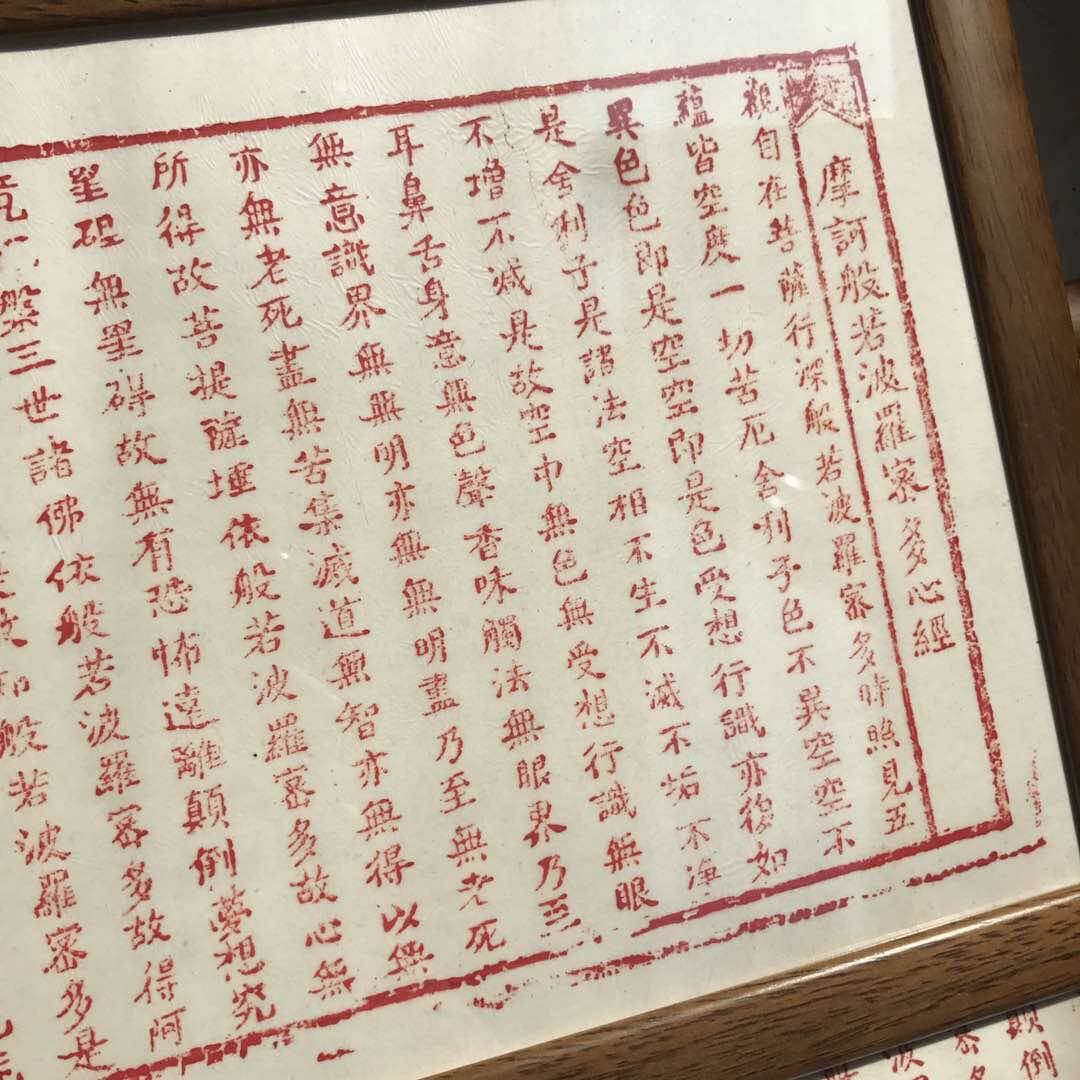 摩訶般若波羅密多心經
觀自在菩薩行深般若波羅密多時照見五
蘊皆空度一切苦厄舍利子色不異空空不
異色色即是空空即是色受想行識亦復如
是舍利子是諸法空相不生不滅不垢不淨
不增不減是故空中無色無受想行識無眼
耳鼻舌身意無色聲香味觸法無眼界乃至
無意識界無無明亦無無明盡乃至無老死
亦無老死盡無苦集滅道無智亦無得以無
所得故菩提薩埵依般若波羅密多故心無
罣碍無罣碍故無有恐怖遠離顛倒夢想究
竟涅槃三世諸佛依般若波羅密多故得阿
故知般若波羅密多是
顛倒
波